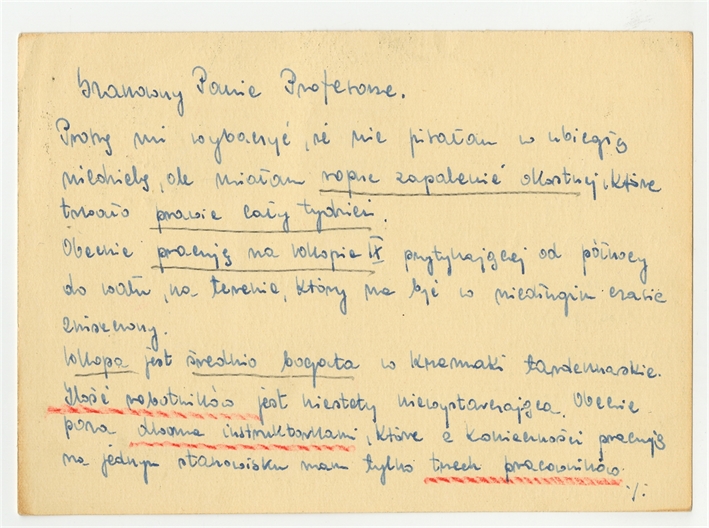 Szanowny Panie Profesorze.
Proszę mi wybaczyć, że nie pisałam w ubiegłą
niedzielę, ale miałam ropne zapalenie okostnej, które
trwało prawie cały tydzień.
Obecnie pracuję na wkopie IX przytykającej od północy
do wału, na terenie, który ma być w niedługim czasie
zniszczony.
Wkopa jest średnio bogata w krzemaki tardenuaskie.
Ilość robotników jest niestety niewystarczająca. Obecnie
poza dwoma instruktorkami, które z konieczności pracują
na jednym stanowisku mam tylko trzech pracowników.
./.